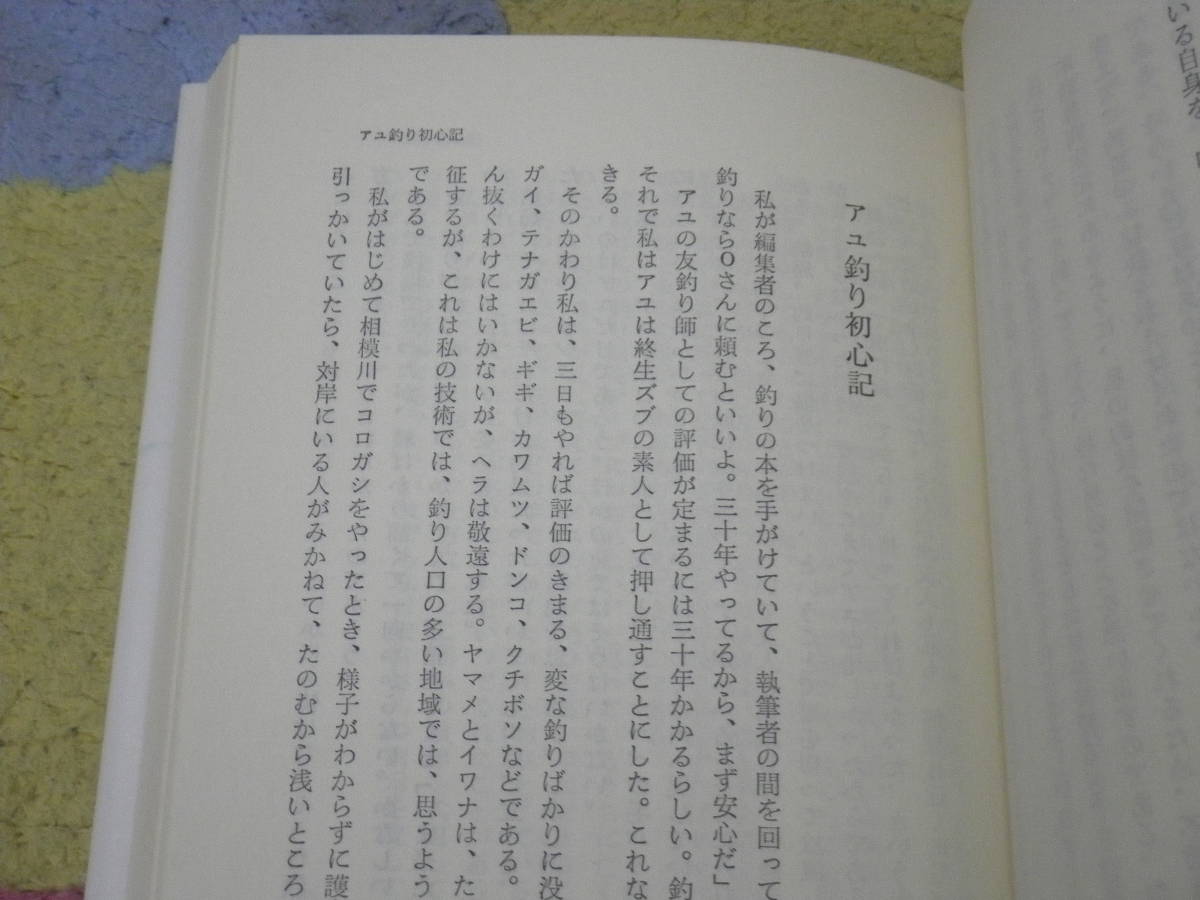 いる自身を
アユ釣り初心記
アユ釣り初心記
私が編集者のころ、釣りの本を手がけていて、執筆者の間を回って
釣りならOさんに頼むといいよ。三十年やってるから、まず安心だ」
アユの友釣り師としての評価が定まるには三十年かかるらしい。釣
それで私はアユは終生ズブの素人として押し通すことにした。これな
きる。
そのかわり私は、三日もやれば評価のきまる、変な釣りばかりに没
ガイ、テナガエビ、ギギ、カワムツ、ドンコ、クチボソなどである。
ん抜くわけにはいかないが、ヘラは敬遠する。ヤマメとイワナは、た
征するが、これは私の技術では、釣り人口の多い地域では、「思うよう
である。
私がはじめて相模川でコロガシをやったとき、様子がわからずに護
引っかいていたら、対岸にいる人がみかねて、たのむから浅いところ